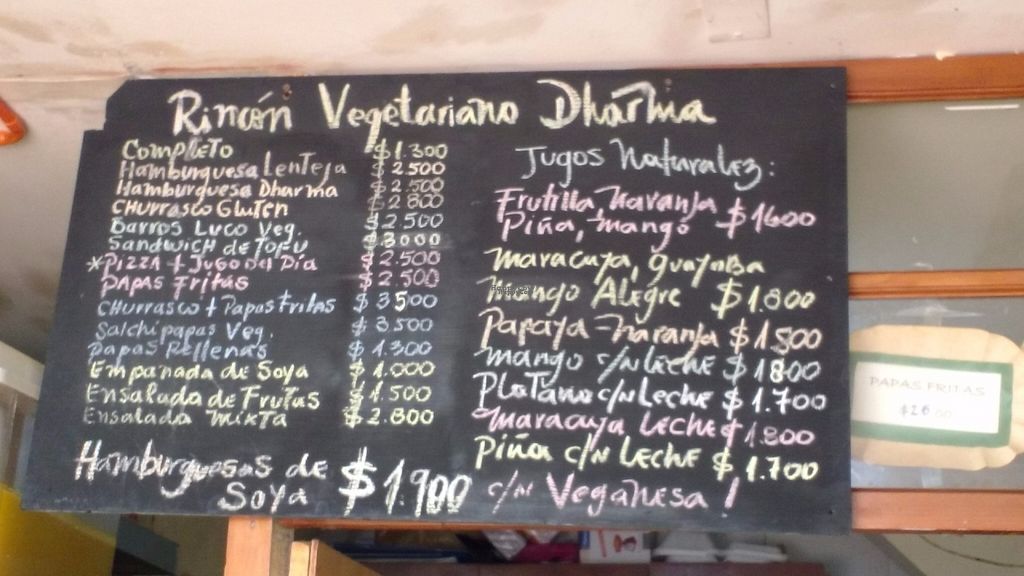 Rincón Vegetariano Dharma
Completo $1.300
Hamburguesa Lenteja $2.500
Hamburguesa Dharma $2.500
Churrasco Gluten $2.800
Barros Luco Veg. $2.500
Sandwich de Tofu $3000
*Pizza + Jugo del Dia $2.500
Papas Fritas $2.500
Churrasco + Papas Fritas $3500
Salchipapas Veg. $3.500
Papas Rellenas $1.300
Empanada de Soya $1.000
Ensalada de Frutas $1.500
Ensalada Mixta $2.800
Hamburguesas de Soya $1.900 c/n Veganesa!
Jugos Naturalez:
Frutilla, Naranja
Piña, Mango $1600
Maracuya, Guayaba
Mango Alegre $1.800
Papaya-Naranja $1.800
Mango c/n Leche $1800
Platano c/n Leche $1.700
Maracuya Leche $1.800
Piña c/n Leche $1.700
PAPAS FRITAS